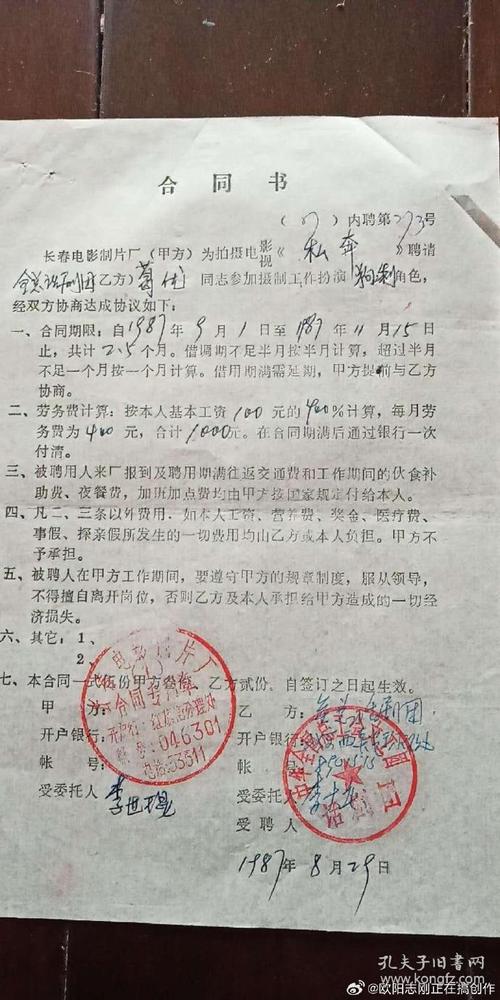 合同书
（87）内聘第273号
长春电影制片厂（甲方）为拍摄电影视《私奔》聘请
全总话剧团乙方）葛优同志参加摄制工作扮演角色，
经双方协商达成协议如下：
一、合同期限：自1987年9月1日至1987年11月15日
止，共计2.5个月。借调期不足半月按半月计算，超过半月
不足一个月按一个月计算。借用期满需延期，甲方提前与乙方
协商。
二、劳务费计算：按本人基本工资100元的400%计算，每月劳
务费为400元，合计1000元。在合同期满后通过银行一次
付清。
三、被聘用人来厂报到及聘用期满往返交通费和工作期间的伙食补
助费、夜餐费，加班加点费均由甲方按国家规定付给本人。
四、凡二、三条以外费用．如本人工资、营养费、奖金、医疗费、
事假、探亲假所发生的一切费用均由乙方或本人负担。甲方不
予承担。
五、被聘人在甲方工作期间，要遵守甲方的规章制度，服从领导，
不得擅自离开岗位，否则乙方及本人承担给甲方造成的一切经
济损失。
六、其它：1、
2、
七、本合同一式伍份甲方叁份，乙方贰份，自签订之日起生效。
甲方：
乙方：全总话剧团
开户银行：
开户银行：
帐号：
帐号：
受委托人
受委托人
受聘人
电影制片厂
合同专用章
046301
电话53311
话剧团
1987年8月29日
孔夫子旧书网
@欧阳志刚正在搞创作